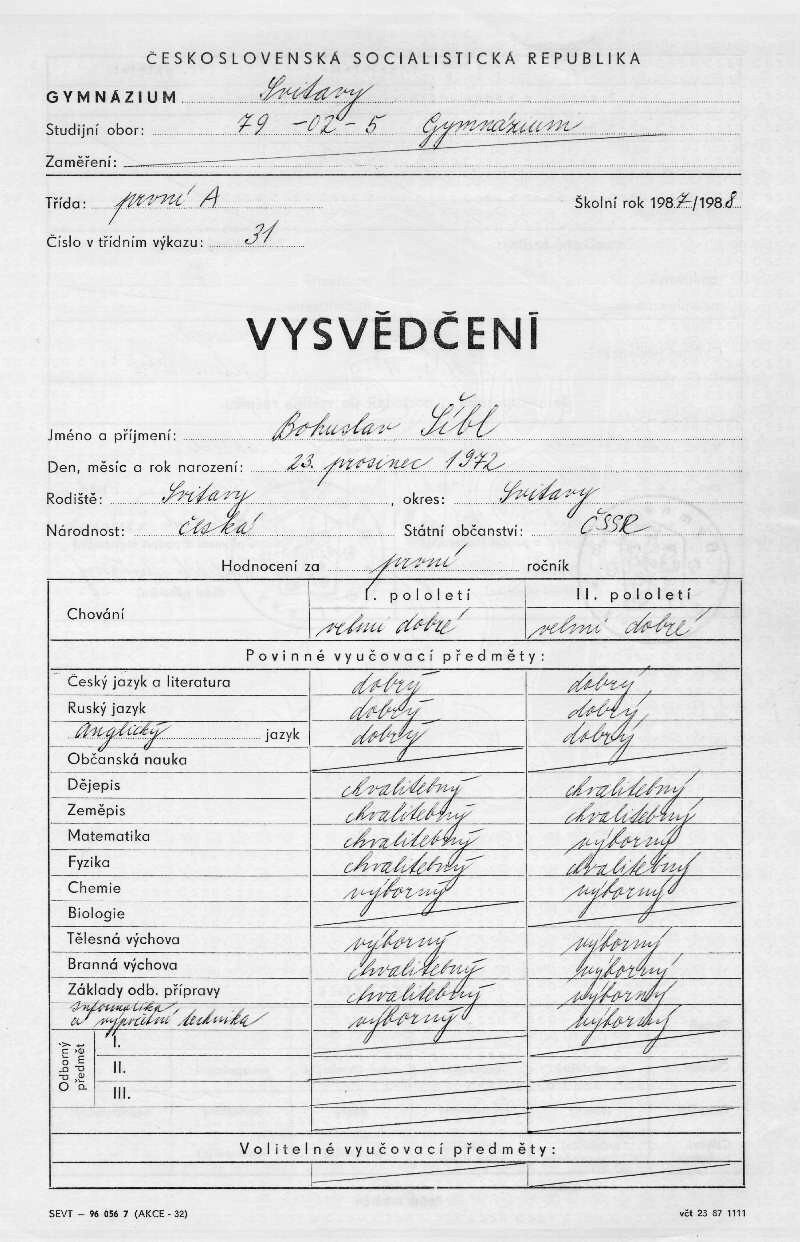 ČESKOSLOVENSKÁ SOCIALISTICKÁ REPUBLIKA
GYMNÁZIUM Svitavy
Studijní obor: 79 - 02 - 5 Gymnázium
Zaměření:
Třída: první A Školní rok 1987/1988
Číslo v třídním výkazu: 31
VYSVĚDČENÍ
Jméno a příjmení: Bohuslav Šíbl
Den, měsíc a rok narození: 23. prosinec 1972
Rodiště: Svitavy, okres: Svitavy
Národnost: česká Státní občanství: ČSSR
Hodnocení za první ročník
Chování I. pololetí II. pololetí
velmi dobré velmi dobré
Povinné vyučovací předměty:
Český jazyk a literatura dobrý dobrý
Ruský jazyk dobrý dobrý
Anglický jazyk dobrý dobrý
Občanská nauka
Dějepis chvalitebný chvalitebný
Zeměpis chvalitebný chvalitebný
Matematika chvalitebný výborný
Fyzika chvalitebný chvalitebný
Chemie výborný výborný
Biologie
Tělesná výchova výborný výborný
Branná výchova chvalitebný výborný
Základy odb. přípravy chvalitebný výborný
Informatika
a výpočetní technika výborný výborný
Odborný předmět I.
II.
III.
Volitelné vyučovací předměty:
SEVT – 96 056 7 (AKCE - 32) včt 23 87 1111